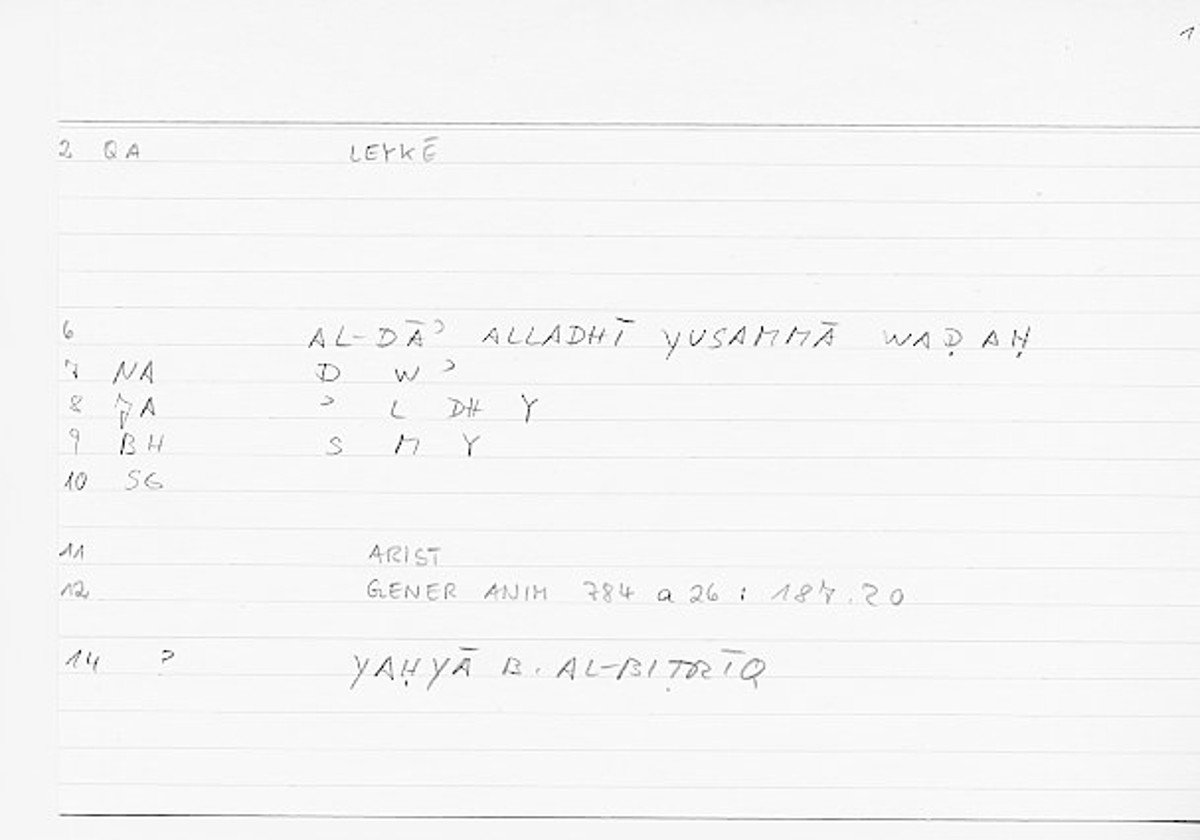 1
2 QA LEYKĒ
6 AL-DĀʾ ALLADHĪ YUSAMMĀ WAḌAḤ
7 NA D W ʾ
8 JA ʾ L DH Y
9 BH S M Y
10 SG
11 ARIST
12 GENER ANIM 784 a 26 : 187.20
14 ? YAḤYĀ B. AL-BIṬRĪQ